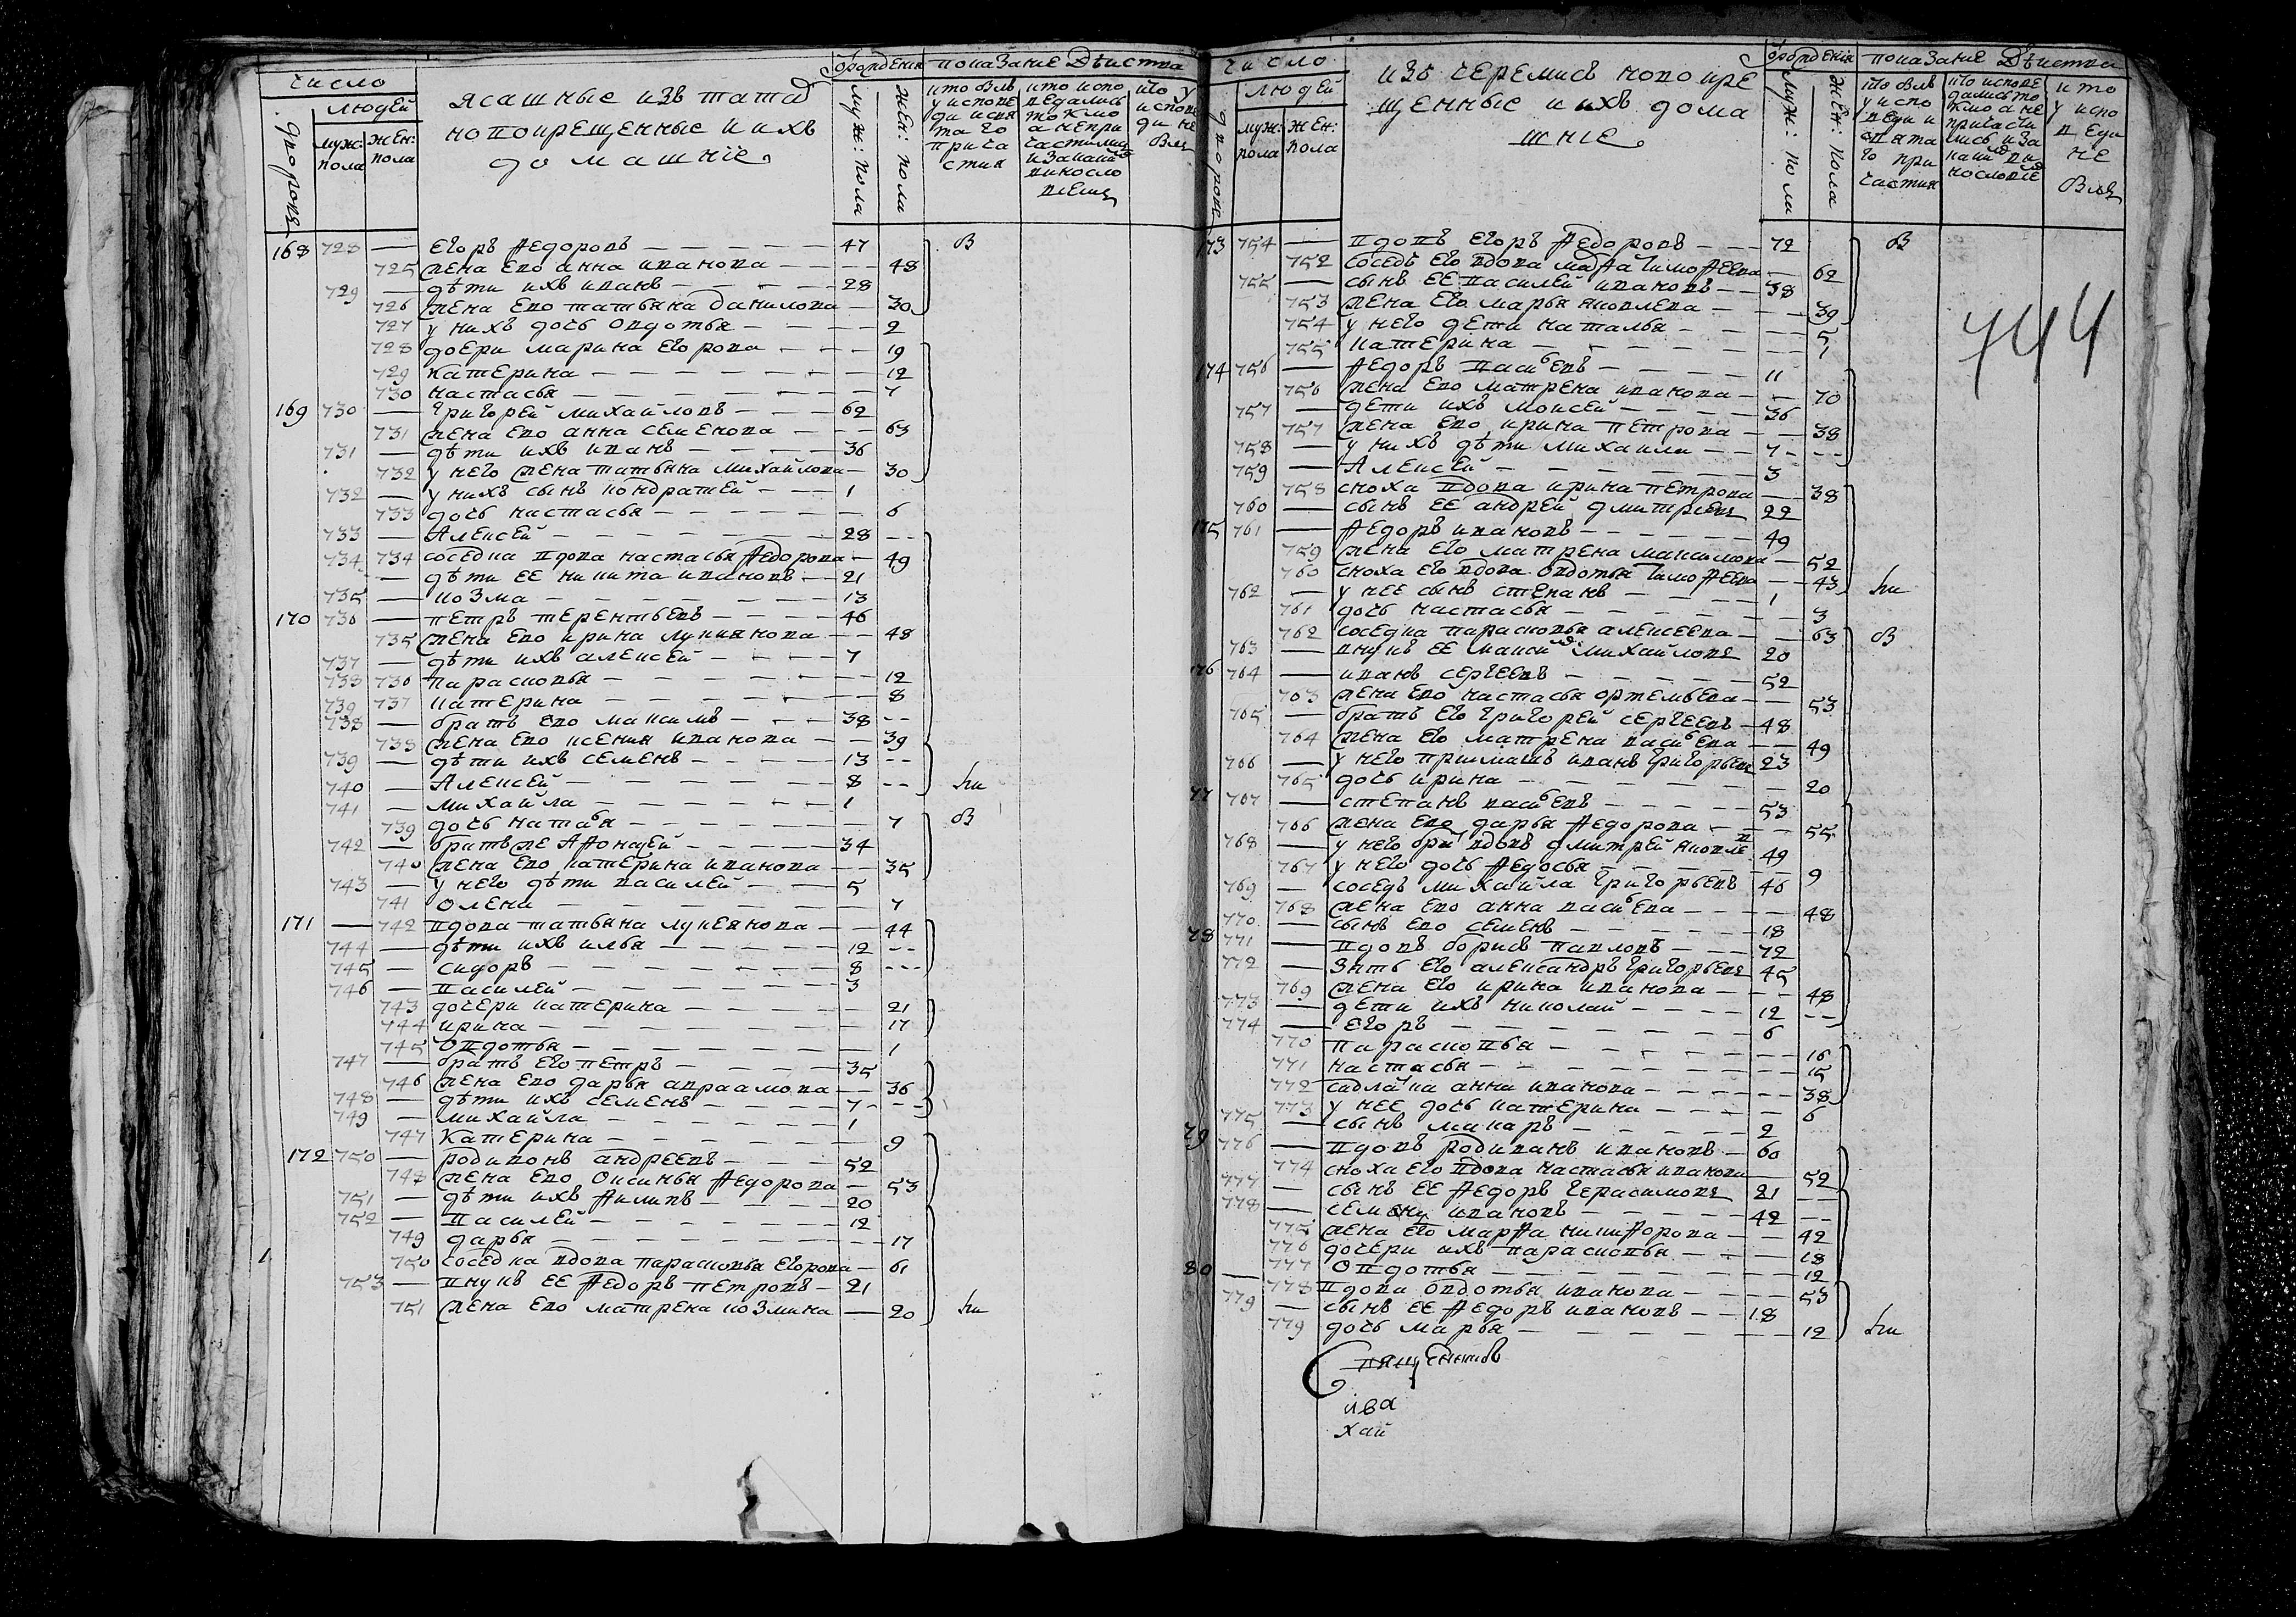 число
людей
дворовъ
муж: пола
жен: пола
ясашные изъ татаръ
новокрещенные и ихъ
домашнïе
От рождения
муж: пола
жен: пола
показанïе Дѣиства
кто былъ у исповеди и святаго причастия
кто исповедались токмо а не причастились и за каким виносло
кто у исповеди не былъ
168 728 — Егоръ Ѳедоровъ — 47 В
725 жена Ево анна иванова — 48
729 — дѣти ихъ иванъ — 28
726 жена Ево татьяна данилова — 30
727 у нихъ дочь овдотья — 2
728 дочери марина Егорова — 19
729 Катерина — 12
730 настасья — 7
169 730 — григорей михайловъ — 62
731 жена Ево анна семенова — 63
731 — дѣти ихъ иванъ — 36
732 у него жена татьяна михайлова — 30
732 — у нихъ сынъ кондратей — 1
733 дочь настасья — 6
733 — Алексей — 28
734 734 соседка вдова настасья Ѳедорова — 49
— дѣти ЕЕ никита ивановъ — 21
735 — козма — 13
170 736 — петръ терентьевъ — 46
735 жена Ево ирина лукиянова — 48
737 — дѣти ихъ алексей — 7
738 736 парасковья — 12
739 737 катерина — 8
738 — братъ Ево максимъ — 38
738 жена Ево ксения иванова — 39
739 — дѣти ихъ семенъ — 13
740 — Алексей — 8
741 — михайла — 1
739 дочь натаья — 7 В
742 — братъ же Аѳонасей — 34
740 жена Ево катерина иванова — 35
743 — у него дѣти василей — 5
741 олена — 7
171 — 742 вдова татьяна лукеянова — 44
744 — дѣти ихъ илья — 12
745 — сидоръ — 8
746 — василей — 3
743 дочери катерина — 21
744 ирина — 17
745 овдотья — 1
747 — братъ Его петръ — 35
746 жена Ево дарья авраамова — 36
748 — дѣти ихъ семенъ — 7
749 — михайла — 1
747 Катерина — 9
172 750 — родивонъ андреевъ — 52
748 жена Ево оксинья Ѳедорова — 53
751 — дѣти ихъ Ѳилипъ — 20
752 — василей — 12
749 дарья — 17
750 соседка вдова парасковья Егорова — 61
753 — внукъ ЕЕ Ѳедоръ петровъ — 21
751 жена Ево матрена козмина — 20
число
людей
дворовъ
муж: пола
жен: пола
изъ черемисъ новокре
щенные и ихъ дома
шнïе
От рождения
муж: пола
жен: пола
показанïе Дѣиства
кто былъ у исповеди и святаго причастия
кто исповедались токмо а не причастились и за каким виносло
кто у исповеди не былъ
744
173 754 — вдовъ Егоръ Ѳедоровъ — 72 В
752 соседъ Его вдова марѳа тимоѳеева — 62
755 — сынъ ЕЕ василей ивановъ — 38
753 жена Его марья яковлева — 39
754 у него дети наталья — 5
755 катерина — 1
174 756 — Ѳедоръ васиевъ — 11
756 жена Ево матрена иванова — 70
757 — дети ихъ моисей — 36
757 жена Ево ирина петрова — 38
758 — у нихъ дѣти михаила — 7
759 — Алексей — 3
758 сноха вдова ирина петрова — 38
760 — сынъ ЕЕ андрей дмитриевъ 22
175 761 — Ѳедоръ ивановъ — 49
759 жена Его матрена максимова — 52
760 сноха Его вдова овдотья тимоѳеева — 43
762 — у неЕ сынъ степанъ — 1
761 дочь настасья — 3
762 соседка парасковья алексеева — 63 В
763 — внукъ ЕЕ максим михайловъ 20
176 764 — иванъ сергеевъ — 52
763 жена Ево настасья ортемьева — 53
765 — братъ Его григорей сергеевъ — 48
764 жена Его матрена васиева — 49
766 — у него приимашъ иванъ григорьевъ 23
765 дочь ирина — 20
77 767 — степанъ васиевъ — 53
766 жена Ево дарья Ѳедорова — 55
768 — у него бра вдовъ дмитрей яковле 49
767 у него дочь Ѳедосья — 9
769 — соседъ михайла григорьевъ 46
768 жена Ево анна васиева — 48
770 — сынъ Ево семенъ — 18
78 771 — вдовъ борисъ павловъ — 72
772 — зять Его александръ григорьевъ 45
769 жена Его ирина иванова — 48
773 — дети ихъ николай — 12
774 — Егоръ — 6
770 парасковья — 16
771 настасья — 15
772 анна иванова — 38
773 у неЕ дочь катерина — 6
775 — сынъ макаръ — 2
79 776 — вдовъ родиванъ ивановъ — 60
774 сноха Его вдова настасья иванова — 52
777 — сынъ ЕЕ Ѳедоръ герасимовъ 21
778 — ивановъ — 42
775 жена Его марѳа никиѳорова — 42
776 дочери ихъ парасковья — 18
777 овдотья — 12
80 — 778 вдова овдотья иванова — 53
779 — сынъ ЕЕ Ѳедоръ ивановъ — 18
779 дочь марья — 12
Священникъ
ива
хай